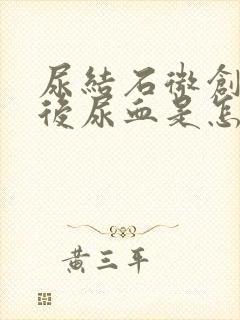 尿結石微創
後尿血是怎
黃三平